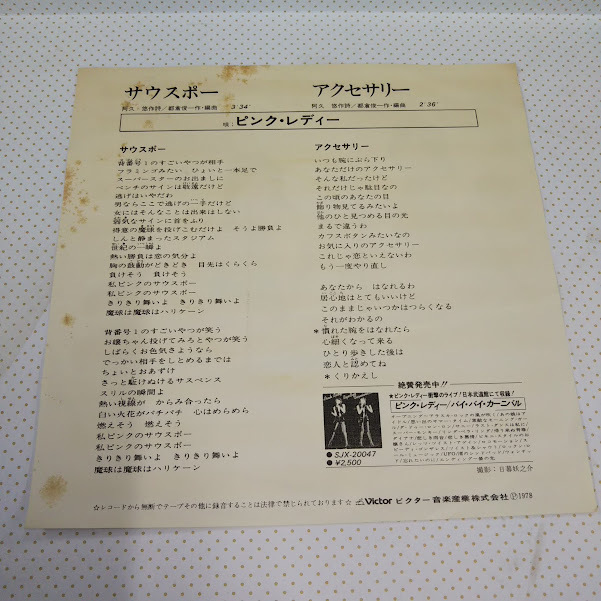 サウスポー
アクセサリー
阿久 悠作詩/都倉俊一作・編曲 3'34"
阿久 悠作詩/都倉俊一作・編曲 2'36"
唄:ピンク・レディー
サウスポー
背番号1のすごいやつが相手
フラミンゴみたい ひょいと一本足で
スーパースターのお出ましに
ベンチのサインは敬遠だけど
逃げはいやだわ
男ならここで逃げの一手だけど
女にはそんなことは出来はしない
弱気なサインに首をふり
得意の魔球を投げこむだけよ そうよ勝負よ
しんと静まったスタジアム
世紀の一瞬よ
熱い勝負は恋の気分よ
胸の鼓動がどきどき 目先はくらくら
負けそう 負けそう
私ピンクのサウスポー
私ピンクのサウスポー
きりきり舞いよ きりきり舞いよ
魔球は魔球はハリケーン
背番号1のすごいやつが笑う
お嬢ちゃん投げてみろとやつが笑う
しばらくお色気さようなら
でっかい相手をしとめるまでは
ちょいとおあずけ
きっと駈けぬけるサスペンス
スリルの瞬間よ
熱い視線が からみ合ったら
白い火花がバチバチ 心はめらめら
燃えそう 燃えそう
私ピンクのサウスポー
私ピンクのサウスポー
きりきり舞いよ きりきり舞いよ
魔球は魔球はハリケーン
アクセサリー
いつも腕にぶら下り
あなただけのアクセサリー
そんな私だったけど
それだけじゃ駄目なの
この頃のあなたの目
飾り物見てるみたいよ
他のひと見つめる目の光
まるで違うわ
カフスボタンみたいなの
お気に入りのアクセサリー
これじゃ恋といえないわ
もう一度やり直し
あなたから はなれるわ
居心地はとてもいいけど
このままじゃいつかはつらくなる
それがわかるの
*慣れた腕をはなれたら
心細くなって来る
ひとり歩きした後は
恋人と認めてね
*くりかえし
絶賛発売中!!
★ピンク・レディー衝撃のライブ!日本武道館にて収録!
ピンク・レディー/バイ・バイ・カーニバル
●SJX-20047
●¥2,500
撮影:日暮妖之介
☆レコードから無断でテープその他に録音することは法律で禁じられております☆
Victor ビクター音楽産業株式会社 Ⓟ1978